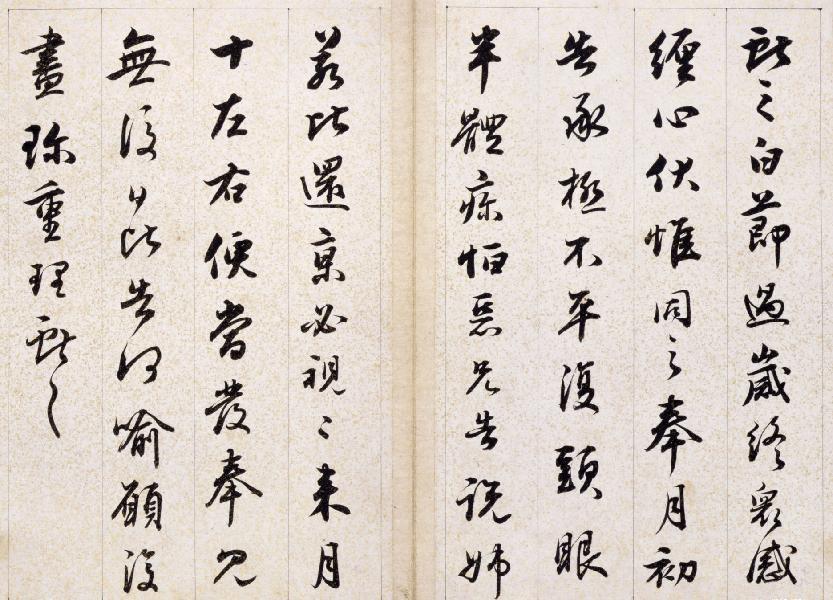 獻之白節過歲終衆感
纏心伏惟同之奉月初
告承極不平復頭眼
半體疼怕惡兄告說姉
若比還京必視之來月
十左右便當發奉見
無復日比告何喻願復
盡珍重理獻之